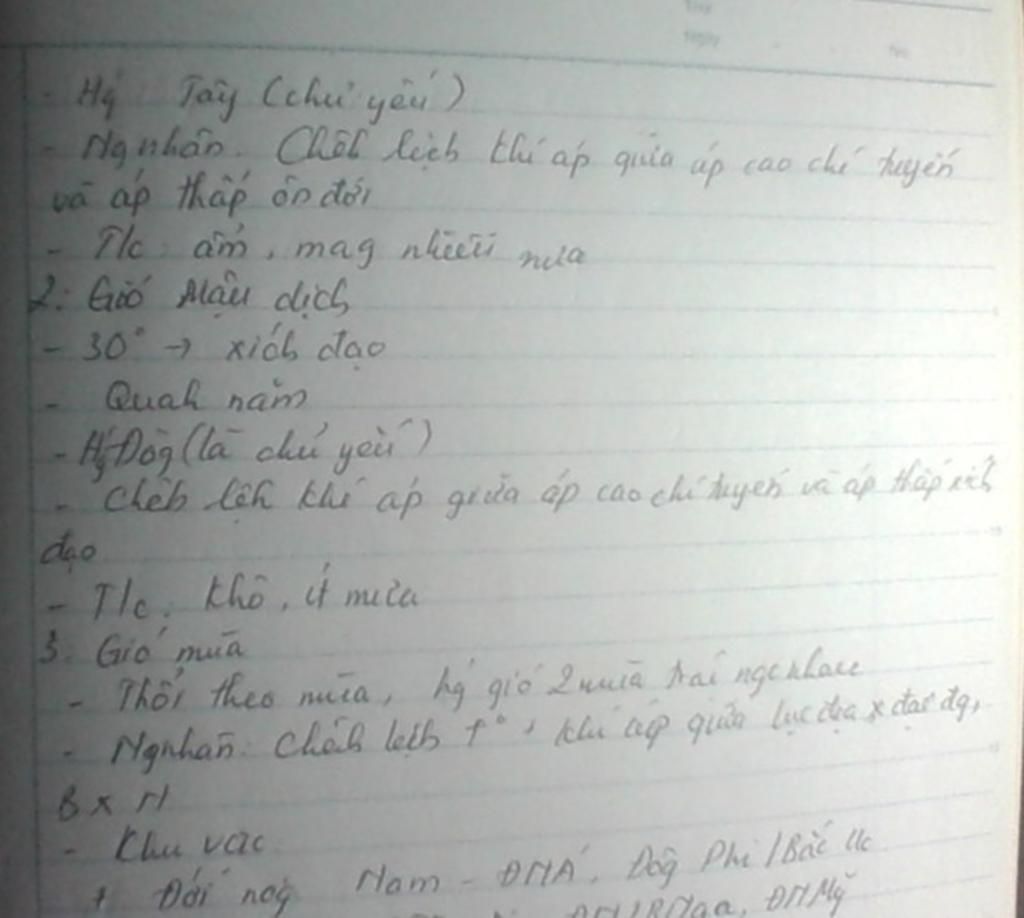 - Hg Tây (chủ yếu)
- Ng nhân. Chênh lệch khí áp giữa áp cao chí tuyến
và áp thấp ôn đới
- T/c: ẩm, mag nhiều mưa
2. Gió Mậu dịch
- 30° → xích đạo
- Quah năm
- Hg Đôg (là chủ yếu)
- Chênh lệch khí áp giữa áp cao chí tuyến và áp thấp xích
đạo
- T/c: khô, ít mưa
3. Gió mùa
- Thổi theo mùa, hg gió 2 mùa trái ngc nhau
- Ng nhân: Chênh lệch t°, khí áp giữa lục địa x đại dg,
B x N
- Khu vực
+ Đới nóg Nam - ĐNÁ, Đôg Phi / Bắc Úc
ĐN Mỹ